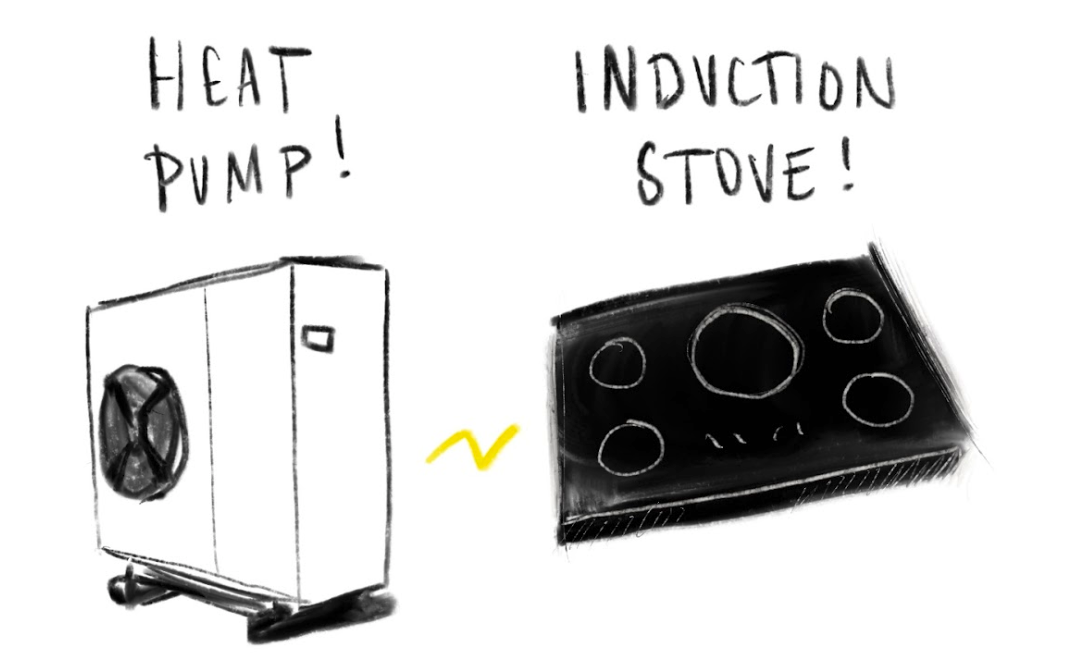 HEAT
PUMP!
INDUCTION
STOVE!